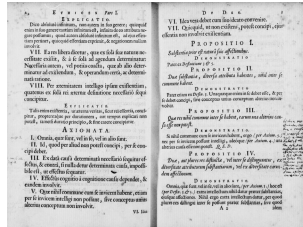 2 ETHICES Pars I.
EXPLICATIO.
Dico absolutè infinitum, non autem in suo genere; quicquid
enim in suo genere tantum infinitum est, infinita de eo attributa ne-
gare possumus; quod autem absolutè infinitum est, ad ejus essen-
tiam pertinet, quicquid essentiam exprimit, & negationem nullam
involvit.
VII. Ea res libera dicitur, quæ ex sola suæ naturæ ne-
cessitate existit, & à se sola ad agendum determinatur:
Necessaria autem, vel potius coacta, quæ ab alio deter-
minatur ad existendum, & operandum certâ, ac determi-
natâ ratione.
VIII. Per æternitatem intelligo ipsam existentiam,
quatenus ex sola rei æternæ definitione necessariò sequi
concipitur.
EXPLICATIO.
Talis enim existentia, ut æterna veritas, sicut rei essentia, conci-
pitur, proptereaque per durationem, aut tempus explicari non
potest, tametsi duratio principio, & fine carere concipiatur.
AXIOMATA.
I. Omnia, quæ sunt, vel in se, vel in alio sunt.
II. Id, quod per aliud non potest concipi, per se con-
cipi debet.
III. Ex datâ causâ determinatâ necessariò sequitur ef-
fectus, & contrà, si nulla detur determinata causa, impossi-
bile est, ut effectus sequatur.
IV. Effectûs cognitio à cognitione causæ dependet, &
eandem involvit.
V. Quæ nihil commune cum se invicem habent, etiam
per se invicem intelligi non possunt, sive conceptus unius
alterius conceptum non involvit.
VI. Idea
DE DEO. 3
VI. Idea vera debet cum suo ideato convenire.
VII. Quicquid, ut non existens, potest concipi, ejus
essentia non involvit existentiam.
PROPOSITIO I.
Substantia prior est naturâ suis affectionibus.
DEMONSTRATIO.
Patet ex Definitione 3. & 5.
PROPOSITIO II.
Duæ substantiæ, diversa attributa habentes, nihil inter se
commune habent.
DEMONSTRATIO.
Patet etiam ex Defin. 3. Unaquæque enim in se debet esse, & per
se debet concipi, sive conceptus unius conceptum alterius non in-
volvit.
PROPOSITIO III.
Quæ res nihil commune inter se habent, earum una alterius cau-
sa esse non potest.
DEMONSTRATIO.
Si nihil commune cum se invicem habent, ergo (per Axiom. 5.)
nec per se invicem possunt intelligi, adeoque (per Axiom. 4.) una
alterius causa esse non potest. Q. E. D.
PROPOSITIO IV.
Duæ, aut plures res distinctæ, vel inter se distinguuntur, ex
diversitate attributorum substantiarum, vel ex diversitate earun-
dem affectionum.
DEMONSTRATIO.
Omnia, quæ sunt, vel in se, vel in alio sunt, (per Axiom. 1.) hoc est
(per Defin. 3. & 5.) extra intellectum nihil datur præter substantias,
earumque affectiones. Nihil ergo extra intellectum datur, per quod
plures res distingui inter se possunt præter substantias, sive quod
A 2 idem